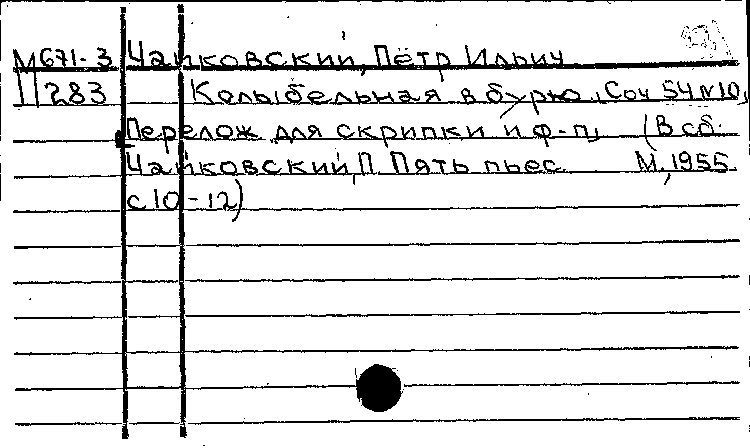 М671-3 Чайковский, Пётр Ильич
П283 Колыбельная в бурю, Соч 54 N10,
Перелож для скрипки и ф-п, (В сб.
Чайковский, П. Пять пьес М, 1955
с 10-12)